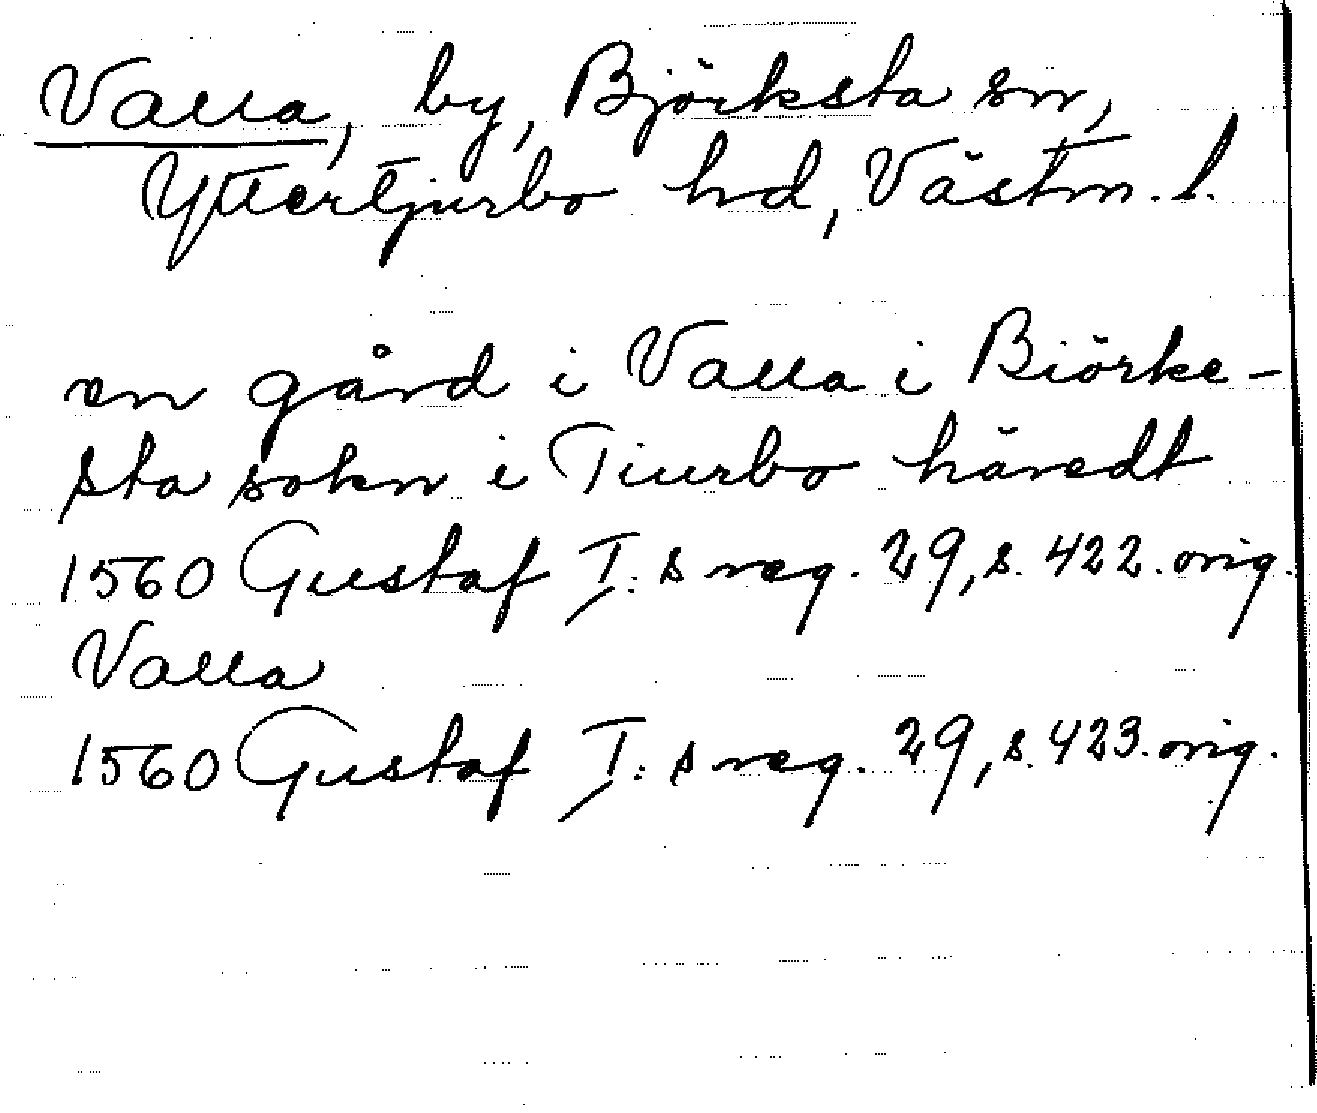 Valla, by, Björksta sn,
Yttertjurbo hd, Västm. l.
en gård i Valla i Biörke-
sta sokn i Tiurbo häredt
1560 Gustaf I: s reg. 29, s. 422. orig.
Valla
1560 Gustaf I: s reg. 29, s. 423. orig.